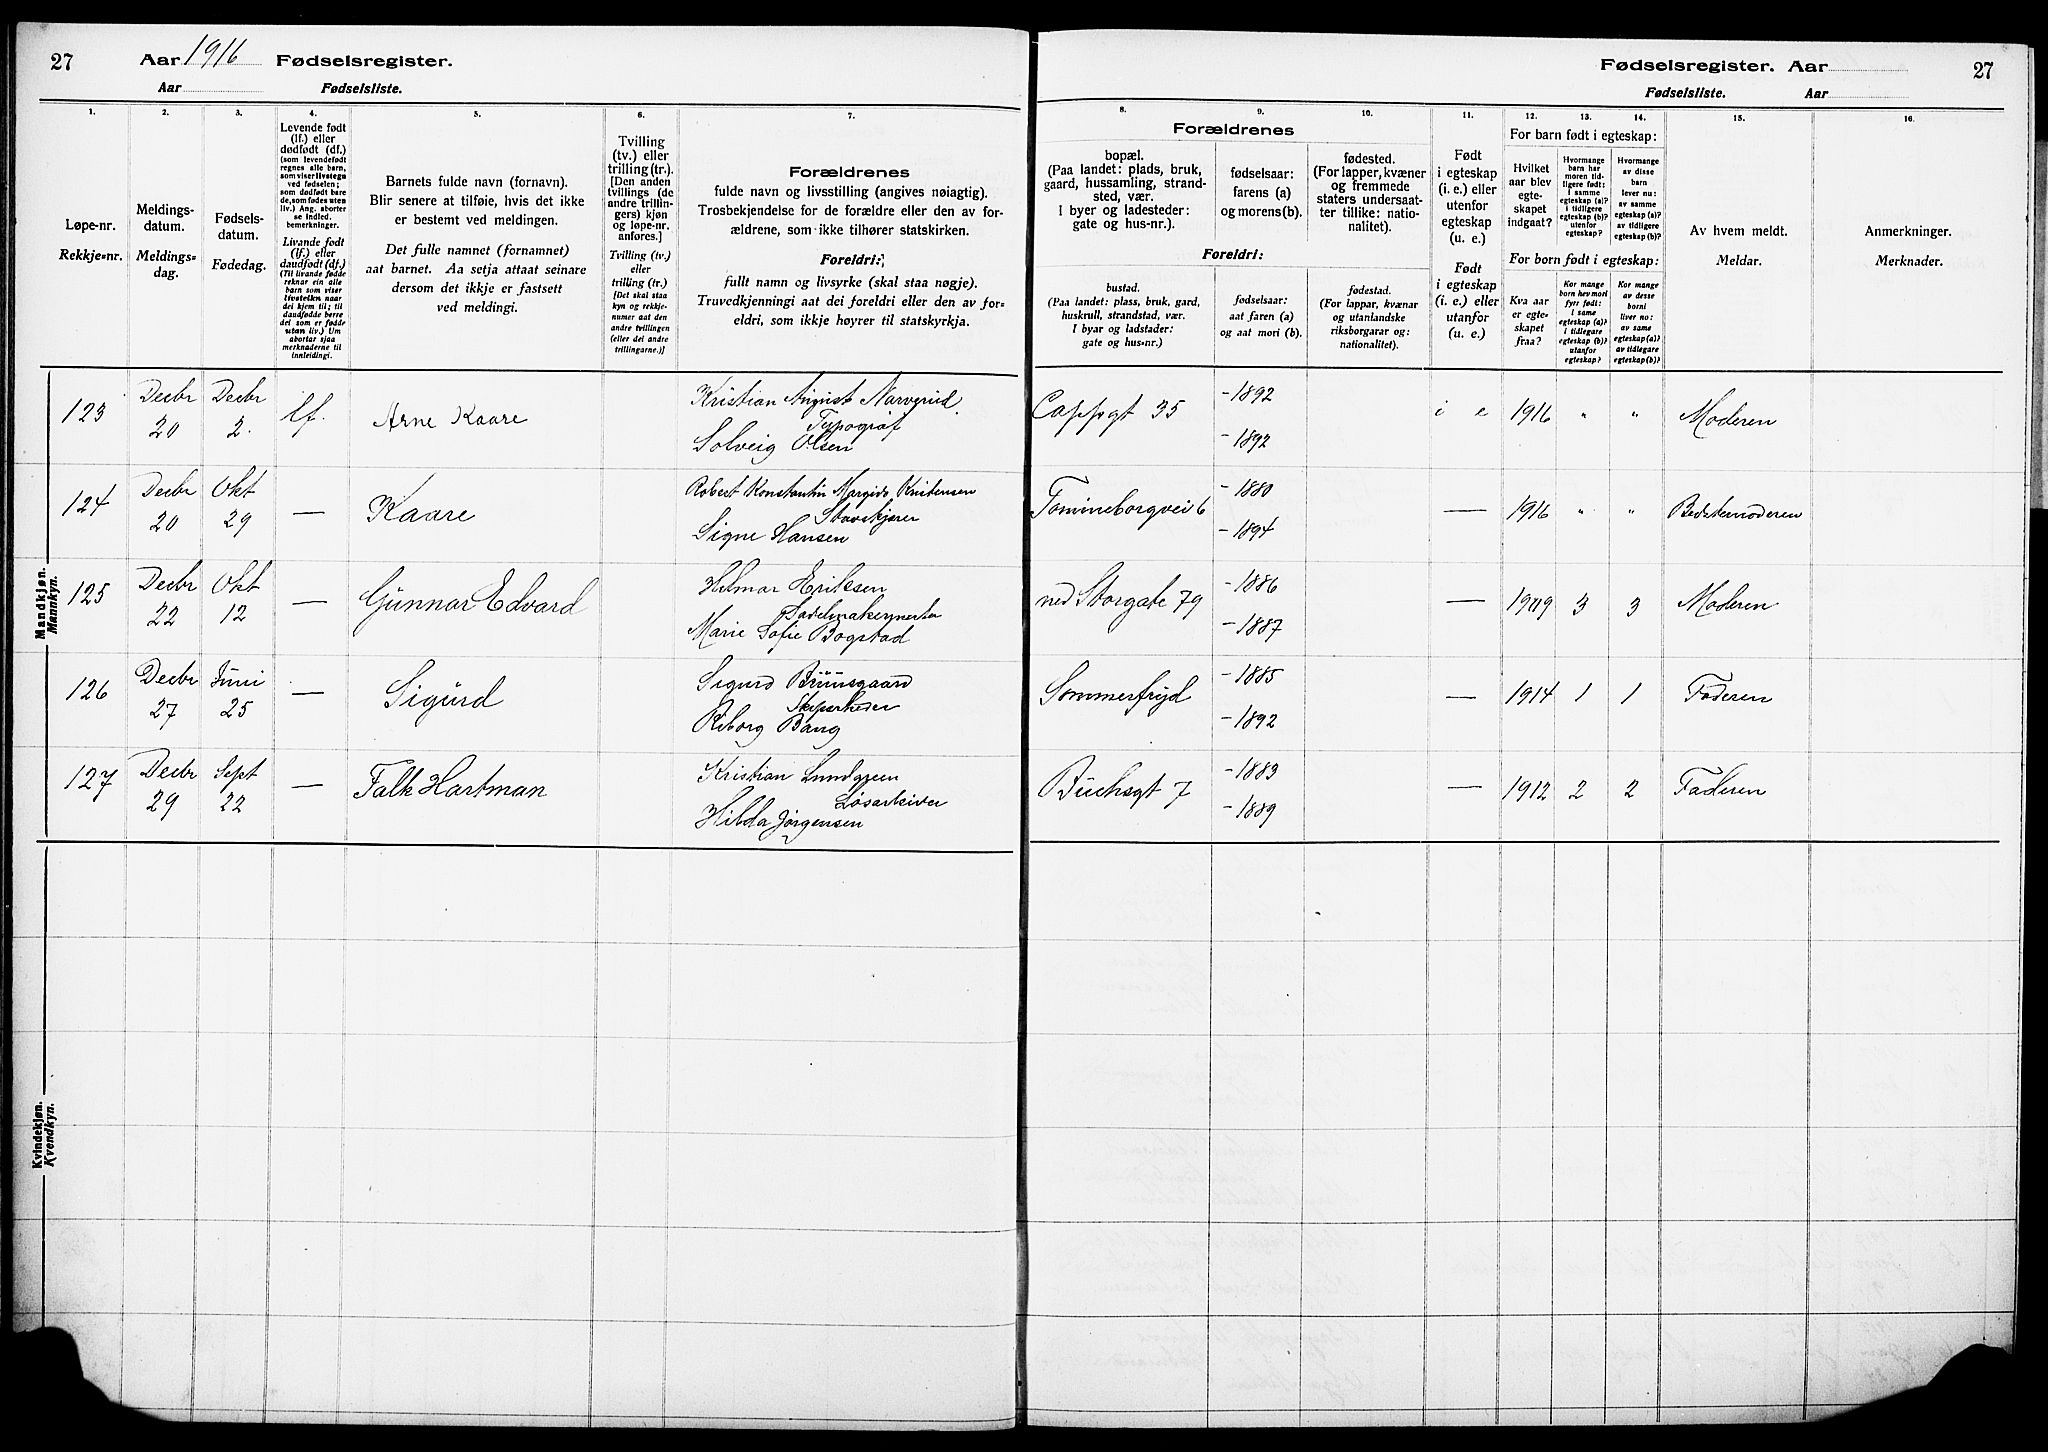 27
Aar 1916 Fødselsregister.
Aar Fødselsliste.
Fødselsregister. Aar
27
Fødselsliste. Aar
1.
2.
3.
4.
5.
6.
7.
8.
9.
10.
11.
12.
13.
14.
15.
16.
Løpe-nr.
Rekkje-nr.
Meldings-
datum.
Meldings-
dag.
Fødsels-
datum.
Fødedag.
Levende født
(lf.) eller
dødfødt (df.)
(som levendefødt
regnes alle barn,
som viser livstegn
ved fødselen;
som dødfødt bare
de, som fødes uten
liv.) Ang. aborter
se indled.
bemerkninger.
Livande født
(lf.) eller
daudfødt (df.)
(Til livande fødde
reknar ein alle
barn som viser
livsteikn naar
dei kjem til; til
daudfødde berre
dei som er fødde
utan liv.) Um
abortar sjaa
merknaderne til
innleidingi.
Barnets fulde navn (fornavn).
Blir senere at tilføie, hvis det ikke
er bestemt ved meldingen.
Det fulle namnet (fornamnet)
aat barnet. Aa setja attaat seinare
dersom det ikkje er fastsett
ved meldingi.
Tvilling
(tv.) eller
trilling (tr.).
[Den anden
tvillings (de
andre trillin-
gers) kjøn
og løpe-nr.
anføres.]
Tvilling (tv.)
eller
trilling (tr.)
[Det skal staa
kyn og rekkje-
numer aat den
andre tvillingen
(eller dei andre
trillingarne.)]
Forældrenes
fulde navn og livsstilling (angives nøiagtig).
Trosbekjendelse for de forældre eller den av for-
ældrene, som ikke tilhører statskirken.
Foreldri:
fullt namn og livsyrke (skal staa nøgje).
Truvedkjenningi aat dei foreldri eller den av for-
eldri, som ikkje høyrer til statskyrkja.
Forældrenes
bopæl.
(Paa landet: plads, bruk,
gaard, hussamling, strand-
sted, vær.
I byer og ladesteder:
gate og hus-nr.).
fødselsaar:
farens (a)
og morens (b).
fødested.
(For lapper, kvæner
og fremmede
staters undersaat-
ter tillike: natio-
nalitet).
Foreldri:
bustad.
(Paa landet: plass, bruk, gard,
huskrull, strandstad, vær.
I byar og ladstader:
gate og hus-nr.)
fødselsaar:
aat faren (a)
og aat mori (b).
fødestad.
(For lappar, kvænar
og utanlandske
riksborgarar og:
nationalitet).
Født
i egteskap
(i. e.) eller
utenfor
egteskap
(u. e.)
Født
i egteskap
(i. e.) eller
utanfor
(u. e.)
For barn født i egteskap:
Hvilket
aar blev
egte-
skapet
indgaat?
Hvormange
barn har
moren tid-
ligere født:
i samme
egteskap (a)?
i tidligere
egteskap (b)?
utenfor
egteskap?
Hvormange
av disse
barn
lever nu:
av samme
egteskap (a)?
av tidligere
egteskap (b)?
For born født i egteskap:
Kva aar
er egte-
skapet
fraa?
Kor mange
born hev mori
fyrr født:
i same
egteskap (a)?
i tidlegare
egteskap (b)?
utanfor
egteskap?
Kor mange
av desse
borni
liver no:
av same
egteskap (a)?
av tidlegare
egteskap (b)?
Av hvem meldt.
Meldar.
Anmerkninger.
Merknader.
Mandkjøn.
Mannkyn.
123 Decbr 20 Decbr 2. lf. Arne Kaare
Kristian August Narverud.
Typograf
Solveig Olsen
Cappsgt 35 -1892 -1892 i e 1916 " " Moderen
124 Decbr 20 Okt 29 — Kaare
Robert Konstantin Margido Kristensen
Signe Hansen
Tomineborgvei 6 -1880 -1894 — 1916 " " Bedstemoderen
125 Decbr 22 Okt 12 — Gunnar Edvard
Hilmar Eriksen
Sadelmakermester
Marie Sofie Bogstad
ned Storgate 79 -1886 -1887 — 1909 3 3 Moderen
126 Decbr 27 Juni 25 — Sigurd
Sigurd Bruusgaard
Skipsrheder
Reborg Bang
Sommerfryd -1885 -1892 — 1914 1 1 Faderen
127 Decbr 29 Sept 22 — Falk Hartman
Kristian Lundgreen
Løsarbeider
Hilda Jørgensen
Buchsgt 7 -1883 -1889 — 1912 2 2 Faderen
Kvindekjøn.
Kvendkyn.